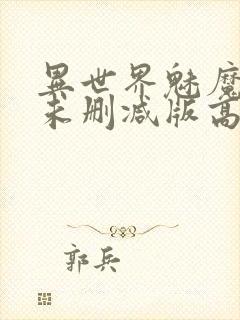 異世界魅魔
未删减版高
郭兵